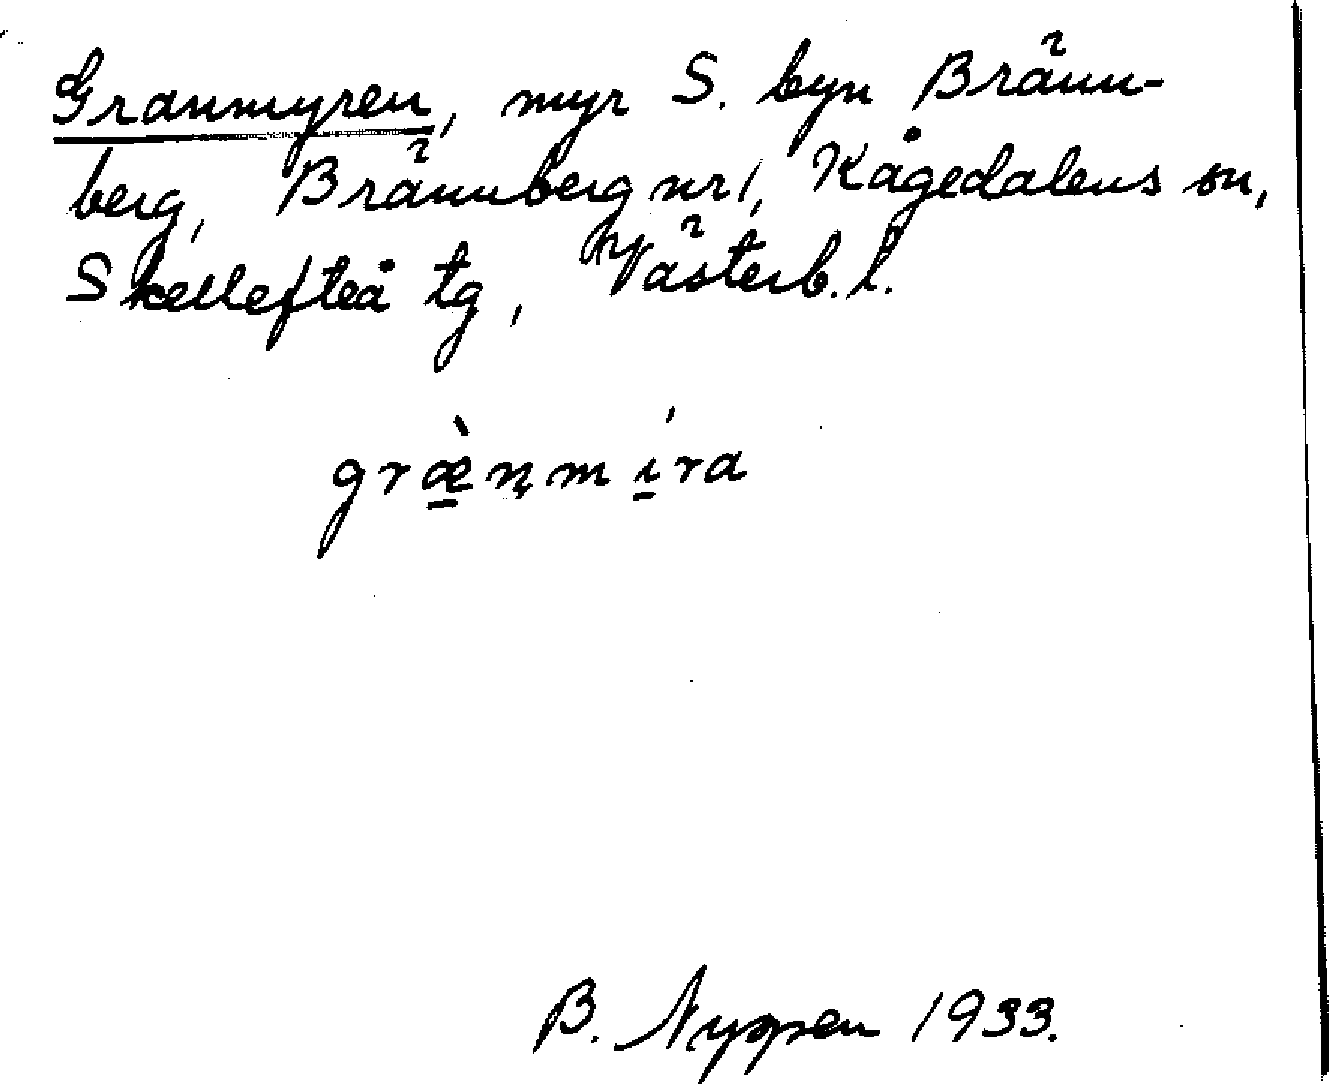 Granmyren, myr S. byn Bränn-
berg, Brännberg nr 1, Kågedalens sn,
Skellefteå tg, Västerb. l.
græ̀nmíra
B. Nyppen 1933.